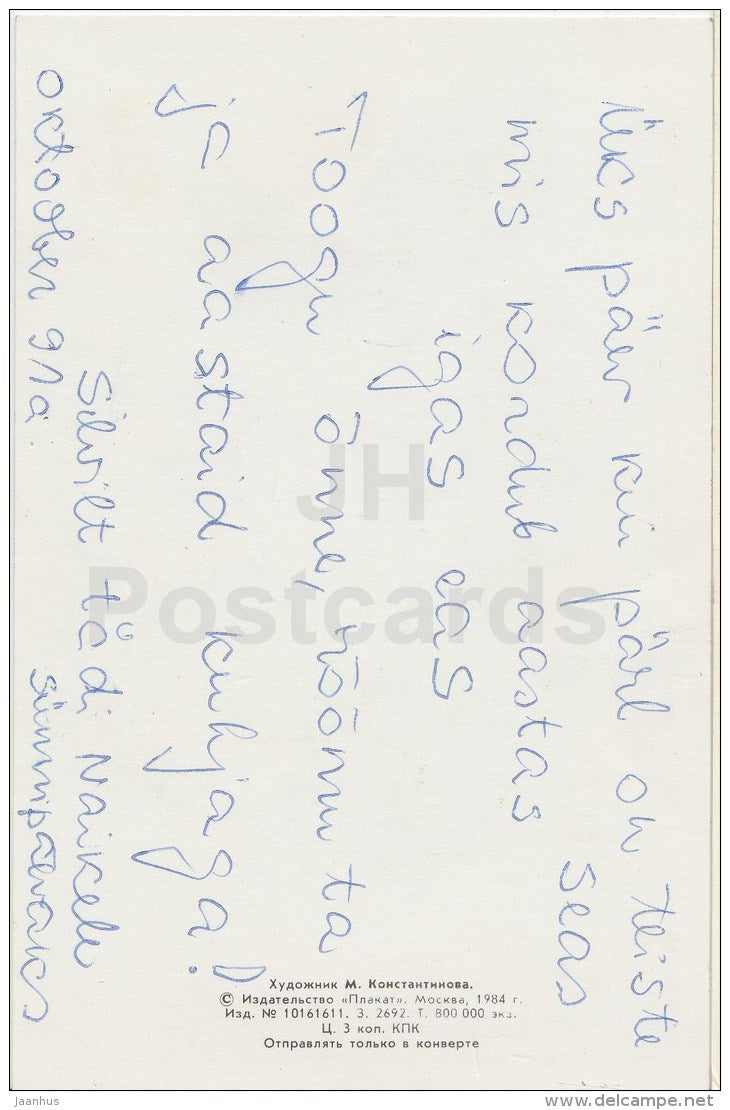 Üks päev kui pärl on teiste
seas
mis kordub aastas
igas eas
Toogu õnne, rõõmu ta
ja aastaid kuhjaga!
Silvilt tädi Naikele
sünnipäevaks
oktoober 91a.
Художник М. Константинова.
© Издательство «Плакат». Москва, 1984 г.
Изд. № 10161611. З. 2692. Т. 800 000 экз.
Ц. 3 коп. КПК
Отправлять только в конверте
JH
Postcards
Jaanhus
www.delcampe.net